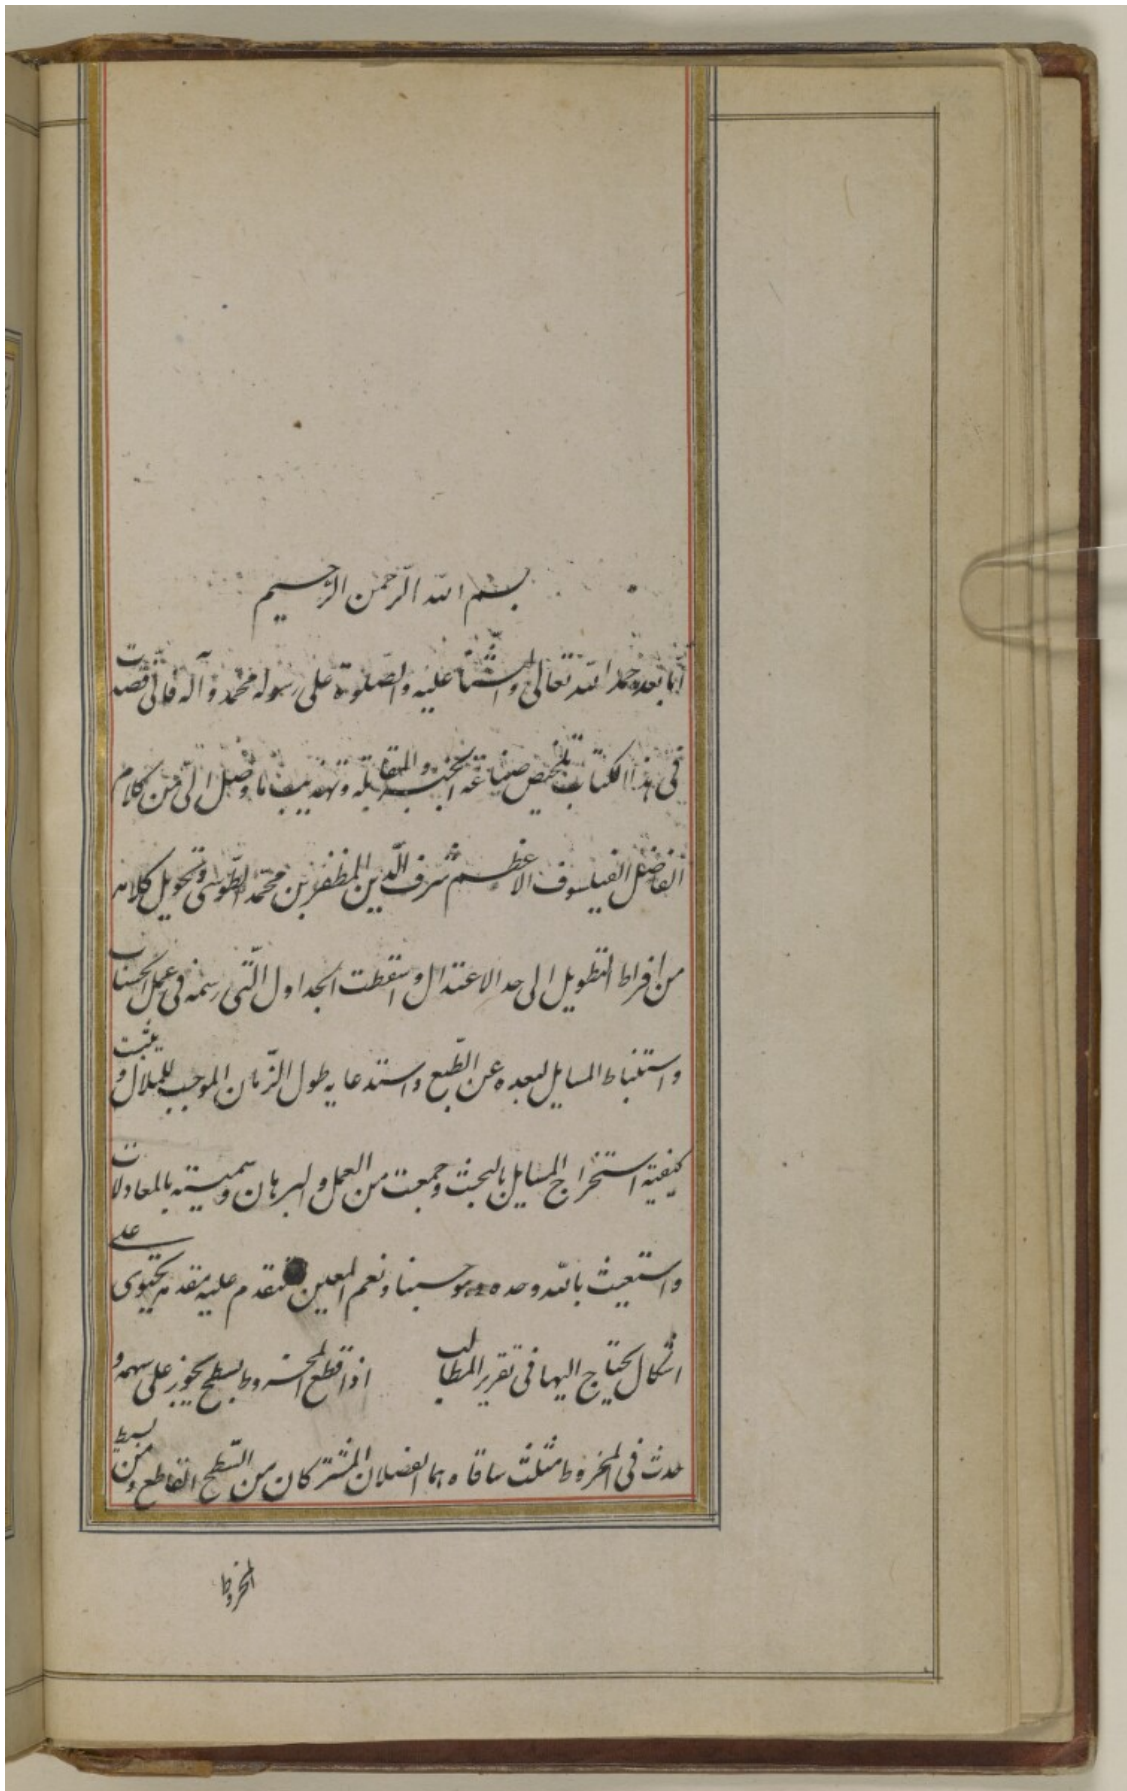 بسم الله الرّحمن الرّحيم
أمّا بعد حمد الله تعالى والثّناء عليه والصّلوة على رسوله محمّد وآله فانّى قصدت
فى هذا الكتاب تلخيص صناعة الجبر والمقابلة وتهذيب ما وصل الىّ من كلام
الفاضل الفيلسوف الاعظم شرف الدّين المظفر بن محمّد الطّوسى وتحويل كلامه
من افراط التطويل الى حد الاعتدال واسقطت الجداول الّتى رسمه فى عمل الحساب
واستنباط المسايل لبعده عن الطّبع واستدعايه طول الزّمان الموجب للملال و يثبت
كيفية استخراج المسايل بالبحث وجمعت من العمل والبرهان وسميته بالمعادلات
واستعيث بالله وحده وهو حسبنا ونعم المعين نتقدم عليه مقدمه يحتوى على
اشكال يحتاج اليها فى تقرير المطالب اذا قطع المخروط بسطح يجوز على سهمه و
حدث فى المخروط مثلث ساقاه هما الفضلان المشتركان من السّطح القاطع ومن بسيط
المخروط